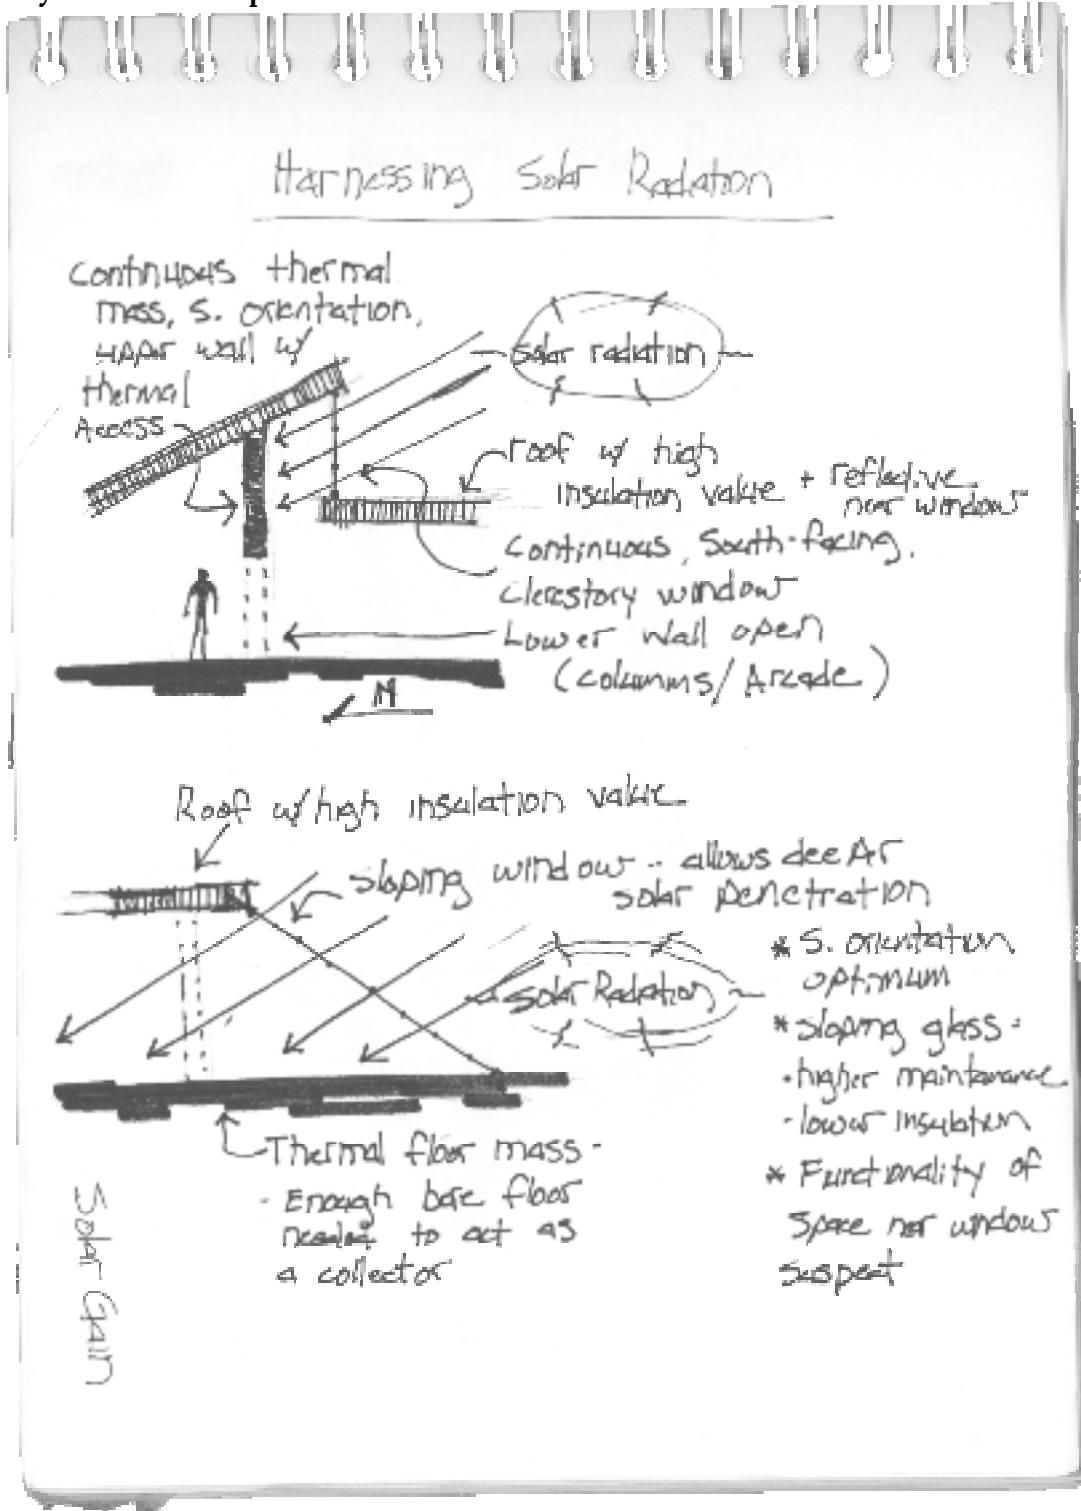 Harnessing Solar Radiation
Continuous thermal
mass, S. orientation,
upper wall w/
thermal
Access
solar radiation
roof w/ high
insulation value + reflective
near window
Continuous, South-facing,
Clerestory window
Lower wall open
(columns/Arcade)
N
Roof w/high insulation value
sloping window -- allows deeper
solar penetration
Solar Radiation
* S. orientation
optimum
* sloping glass -
- higher maintenance
- lower insulation
* Functionality of
space near window
suspect
Thermal floor mass -
- Enough bare floor
needed to act as
a collector
Solar Gain